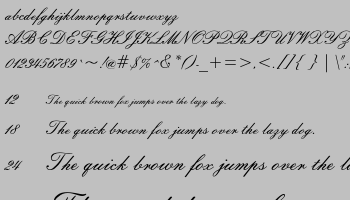 abcdefghijklmnopqrstuvwxyz
ABCDEFGHIJKLMNOPQRSTUVWXYZ
0123456789`~!@#$%^&*()-_+=>,<.[]{ } | \":
12 The quick brown fox jumps over the lazy dog.
18 The quick brown fox jumps over the lazy dog.
24 The quick brown fox jumps over the